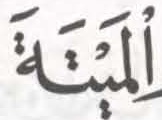 ٱلْمَيْتَةَ